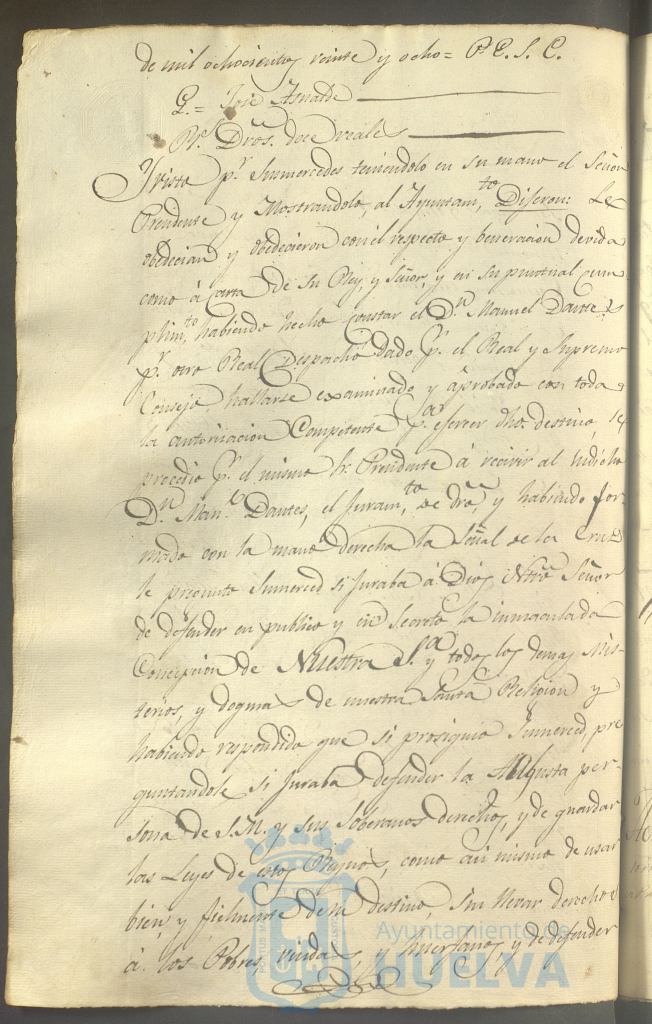 de mil ochocientos veinte y ocho = P. E. S. C.
G. = José Asnalde
Rs. Dros. doce reales
Y visto pr. Sumercedes teniendolo en su mano el Señor
Precidente y Mostrandolo, al Ayuntamto, Diseron: Le
obedecian y obedecieron con el respecto y beneracion devida
como á carta de su Rey, y Señor, y en su puntual cum
plimto, habiendo hecho constar el Dn. Manuel Dautes
pr. otro Real Despacho dado pr. el Real y Supremo
Consejo hallarse examinado y aprobado con toda
la autorizacion Competente pa. eserser dho. destino, se
precedio pr. el mismo Sr. Precidente á recivir al indicho
Dn. Manl. Dautes, el Juramto de dro, y habiendo for-
mado con la mano derecha la Señal de la Cruz
le pregunto Sumerced si Juraba á Dios Ntro Señor
de defender en publico y en Secreto la inmaculada
Concepcion de Nuestra Sa. y todos los demas Mis-
terios, y dogmas de nuestra Santa Religion y
habiendo respondido que si prosiguio Sumerced, pre
guntandole si Juraba defender la Augusta per-
sona de S.M. y sus Soberanos derechos, y de guardar
las Leyes de estos Reynos, como asi mismo de usar
bien y fielmente de su destino, sin llevar derechos
á los Pobres, viudas, y huerfanos, y de defender
Ayuntamiento de
HUELVA